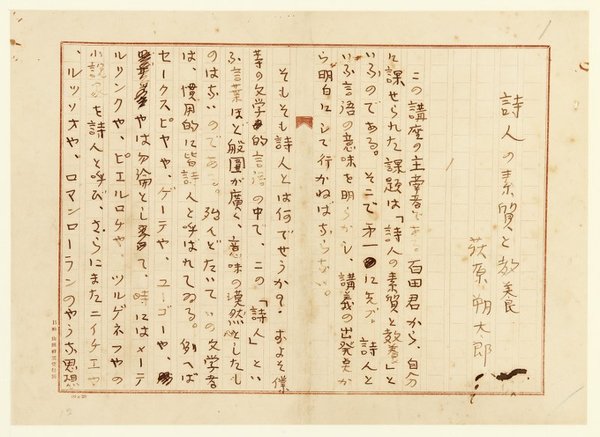 詩人の素質と教養
萩原朔太郎
この講座の主宰者である。百田君から、自分
に課せられた課題は「詩人の素質と教養」と
いふのである。そこで第一に先づ。詩人と
いふ言語の意味を明らかし、講義の出発点か
ら明白にして行かねばならない。
そもそも詩人とは何でせうか?およそ僕
等の文学的言語の中で、この「詩人」とい
ふ言葉ほど範囲が廣く、意味の漠然としたも
のはないのである。殆んどたいていの文学者
は、慣用的に皆詩人と呼ばれてゐる。例へば
セークスピヤや、ゲーテや、ユーゴーや、
やは勿論として、時にはメーテ
ルリンクや、ピエルロチや、ツルゲネフやの
小説家を詩人と呼び、さらにまたニイチエや
、ルッソオや、ロマンローランのやうな思想